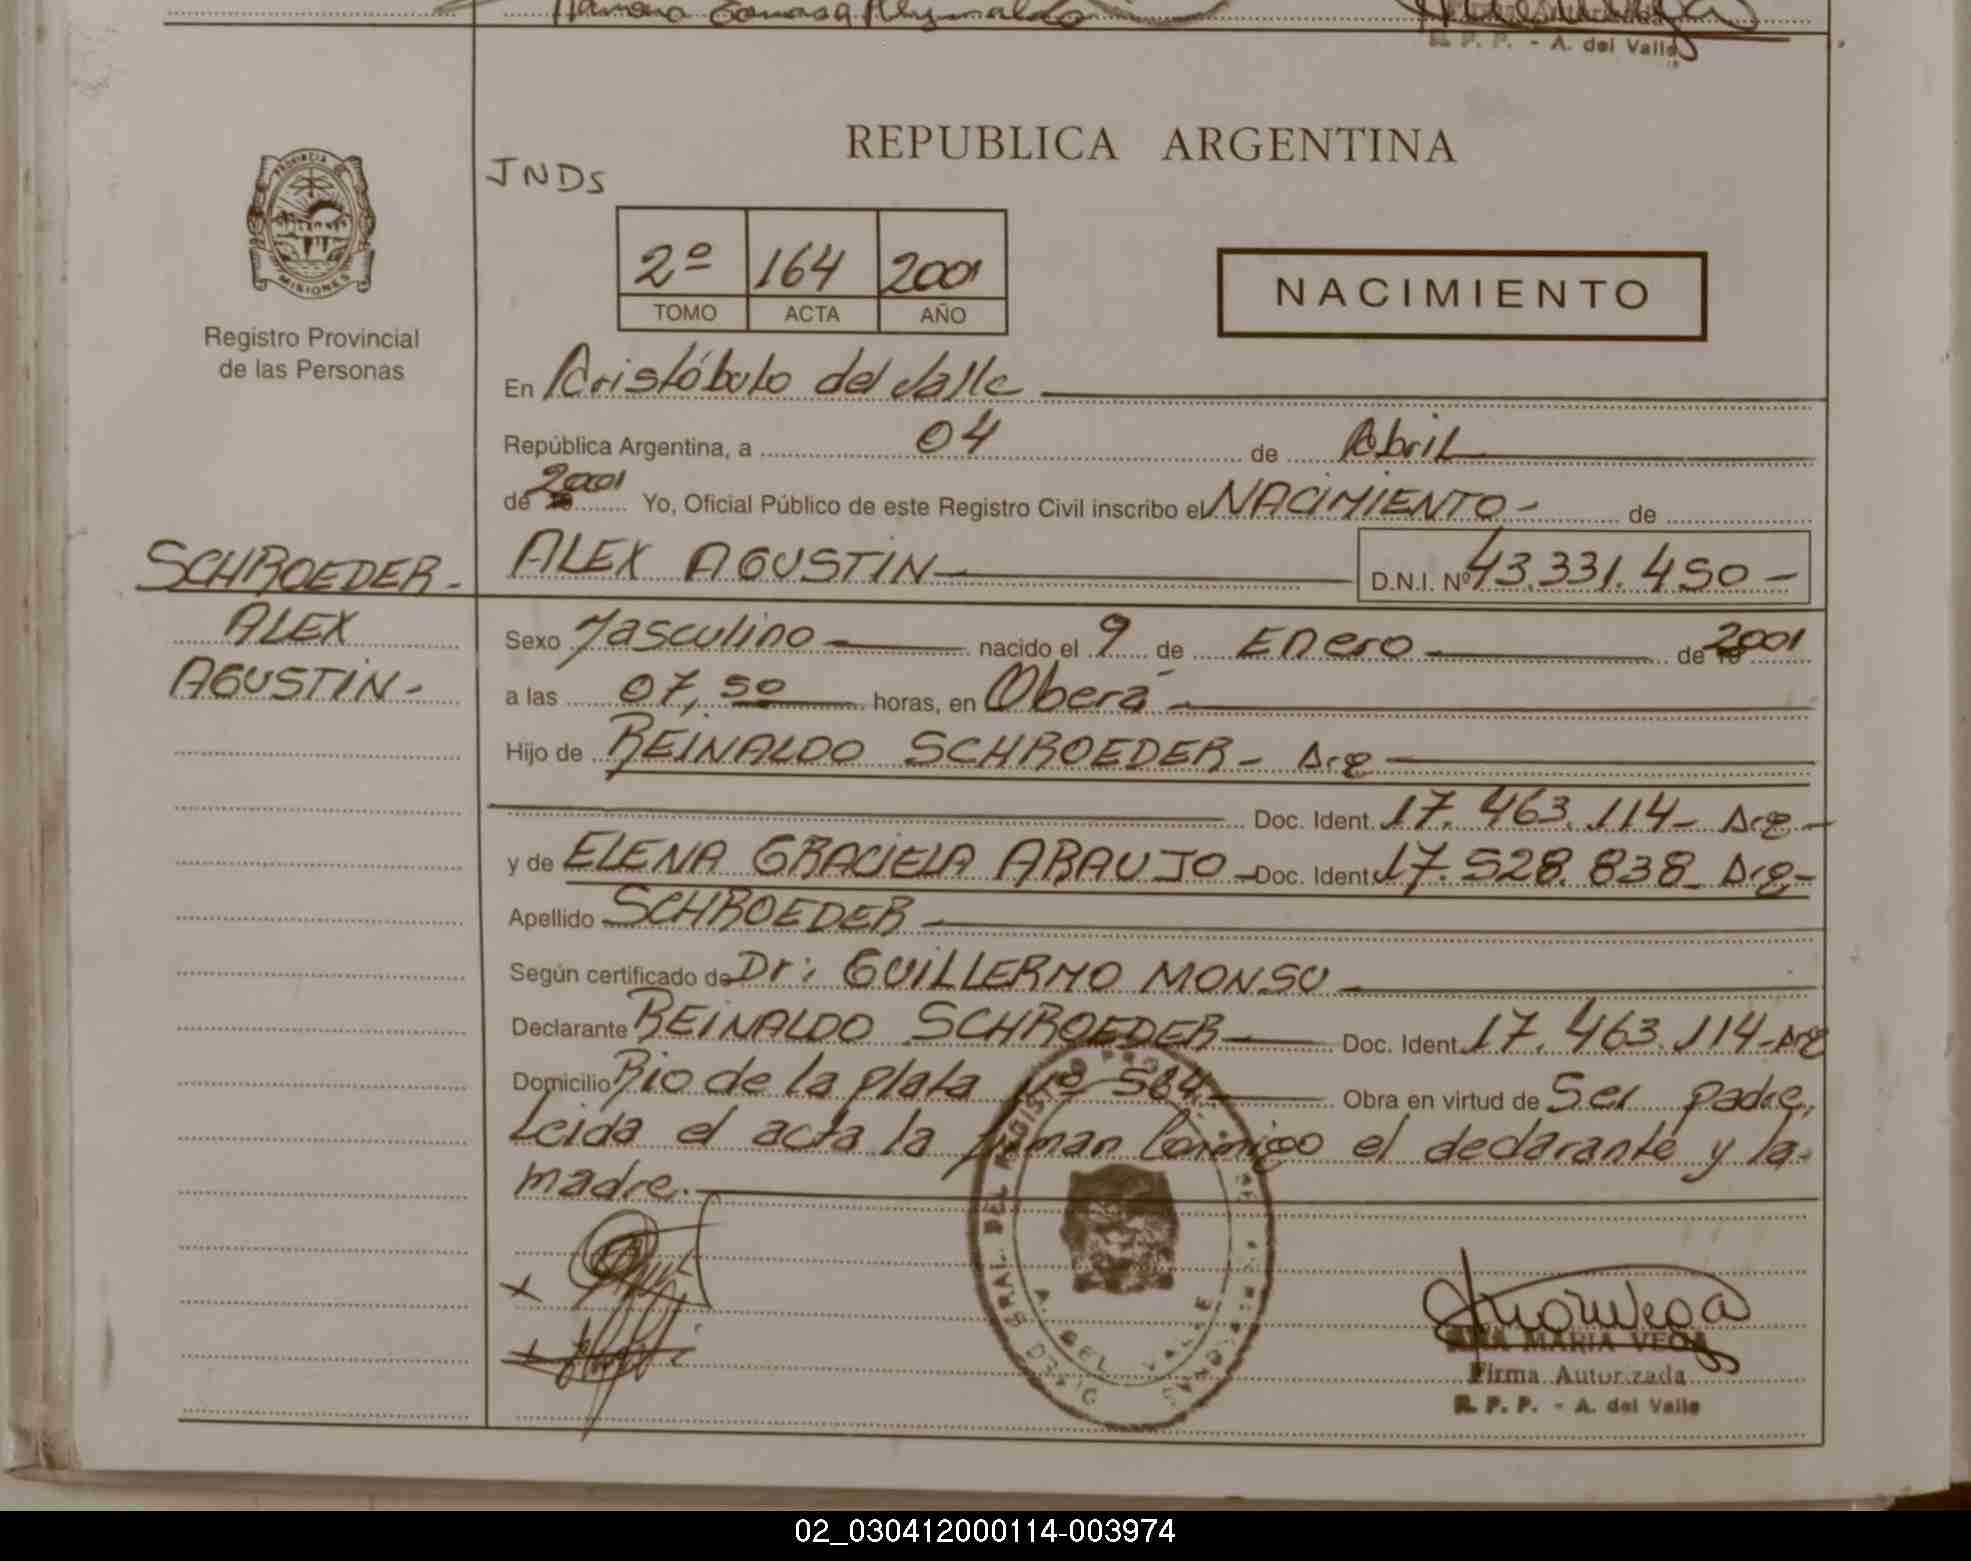 R. P. P. - A. del Valle
PROVINCIA DE
MISIONES
Registro Provincial
de las Personas
REPUBLICA ARGENTINA
JNDS
2º 164 2001
TOMO ACTA AÑO
NACIMIENTO
En Aristóbulo del Valle
República Argentina, a 04 de Abril
de 2001 Yo, Oficial Público de este Registro Civil inscribo el NACIMIENTO - de
SCHROEDER - ALEX AGUSTIN D.N.I. Nº 43.331.450 -
ALEX Sexo Masculino nacido el 9 de Enero de 2001
AGUSTIN - a las 07,50 horas, en Oberá
Hijo de REINALDO SCHROEDER - Arg
Doc. Ident. 17.463.114 - Arg -
y de ELENA GRACIELA ARAUJO - Doc. Ident. 17.528.838 - Arg -
Apellido SCHROEDER
Según certificado de Dr: GUILLERMO MONSU
Declarante REINALDO SCHROEDER Doc. Ident. 17.463.114 - Arg
Domicilio Rio de la plata Nº 564 Obra en virtud de Ser padre,
Leida el acta la firman Conmigo el declarante y la
madre.
A. DEL VALLE
ANA MARIA VEGA
Firma Autorizada
R. P. P. - A. del Valle
02_030412000114-003974